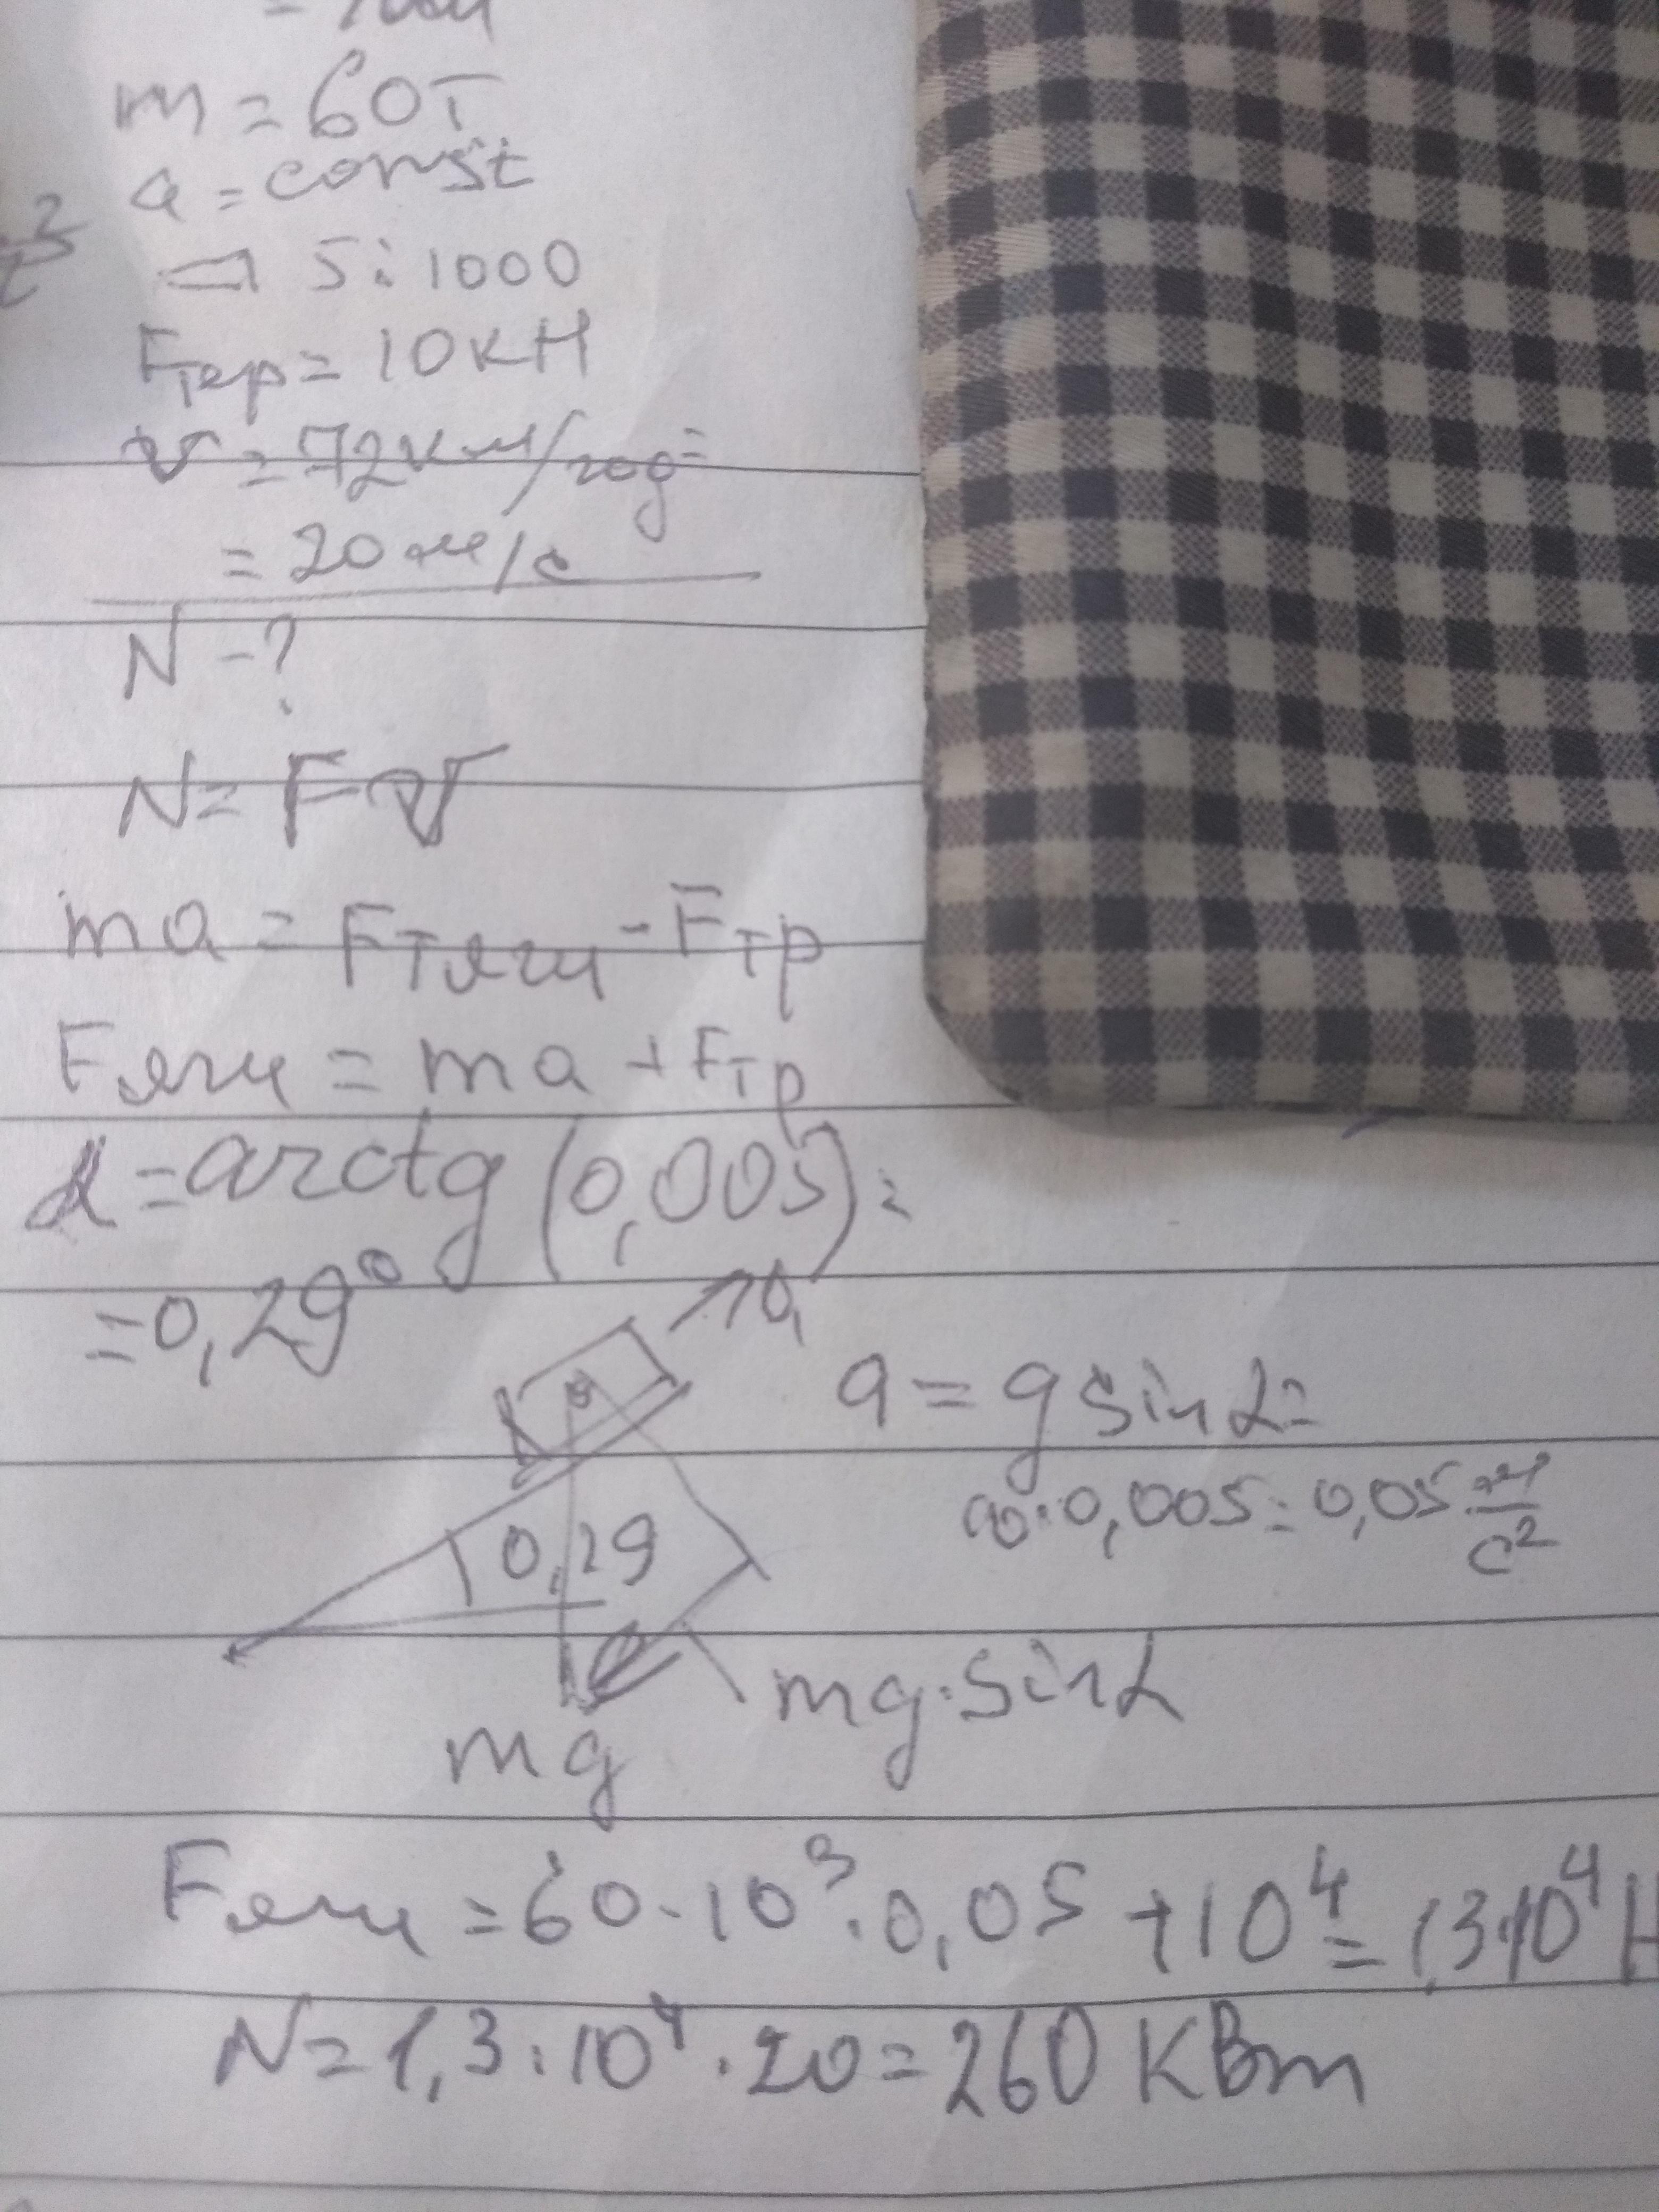 m = 60т
a = const
5:1000
Fтер = 10кН
v = 72км/год =
= 20м/с
N - ?
N = Fv
ma = Fтяги - Fтр
Fтяги = ma + Fтр
α = arctg (0,005) =
= 0,29°
a
a = g sin α =
10·0,005 = 0,05 м/с²
0,29
mg·sin α
mg
Fтяги = 60·10³·0,05 + 10⁴ = 1,3·10⁴ Н
N = 1,3·10⁴·20 = 260 кВт